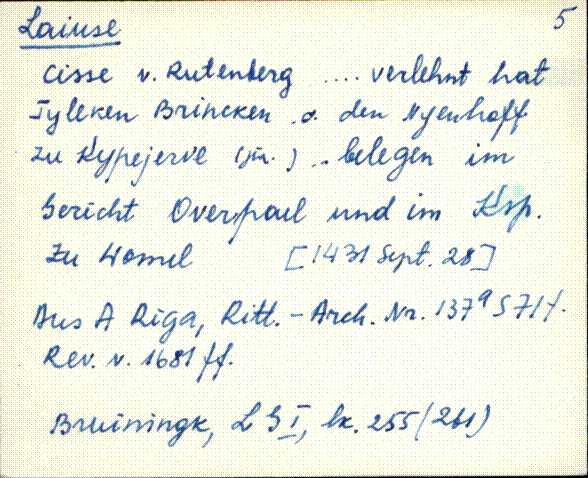 Laiuse 5
Cisse v. Rutenberg .... verlehnt hat
Tyleken Brincken .o. den Nyenhoff
zu Kypejerve (jür.) .. belegen im
Gericht Overpael und im Ksp.
zu Womel [1431 Sept. 28]
Aus A Riga, Ritt.-Arch. Nr. 137a S 71f.
Rev. v. 1681 ff.
Bruiningk, L G I, lk. 255 (261)